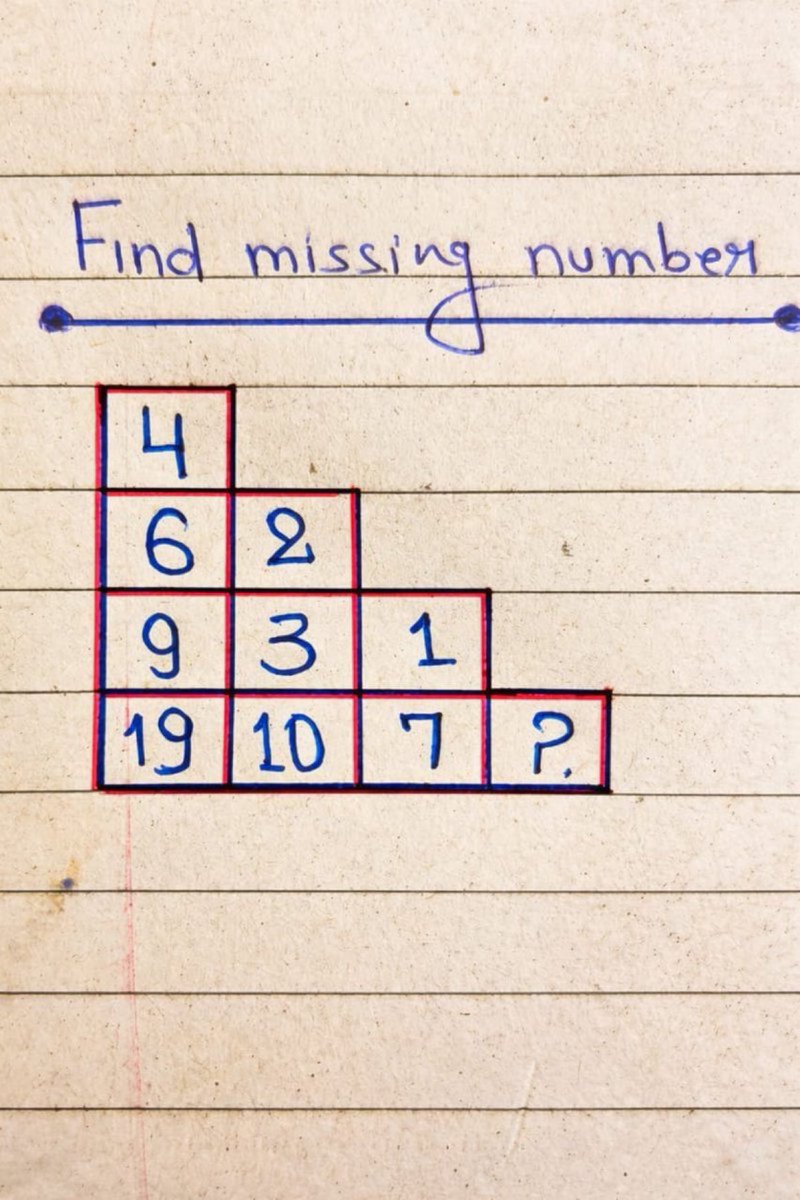 Find missing number
4
6 2
9 3 1
19 10 7 ?